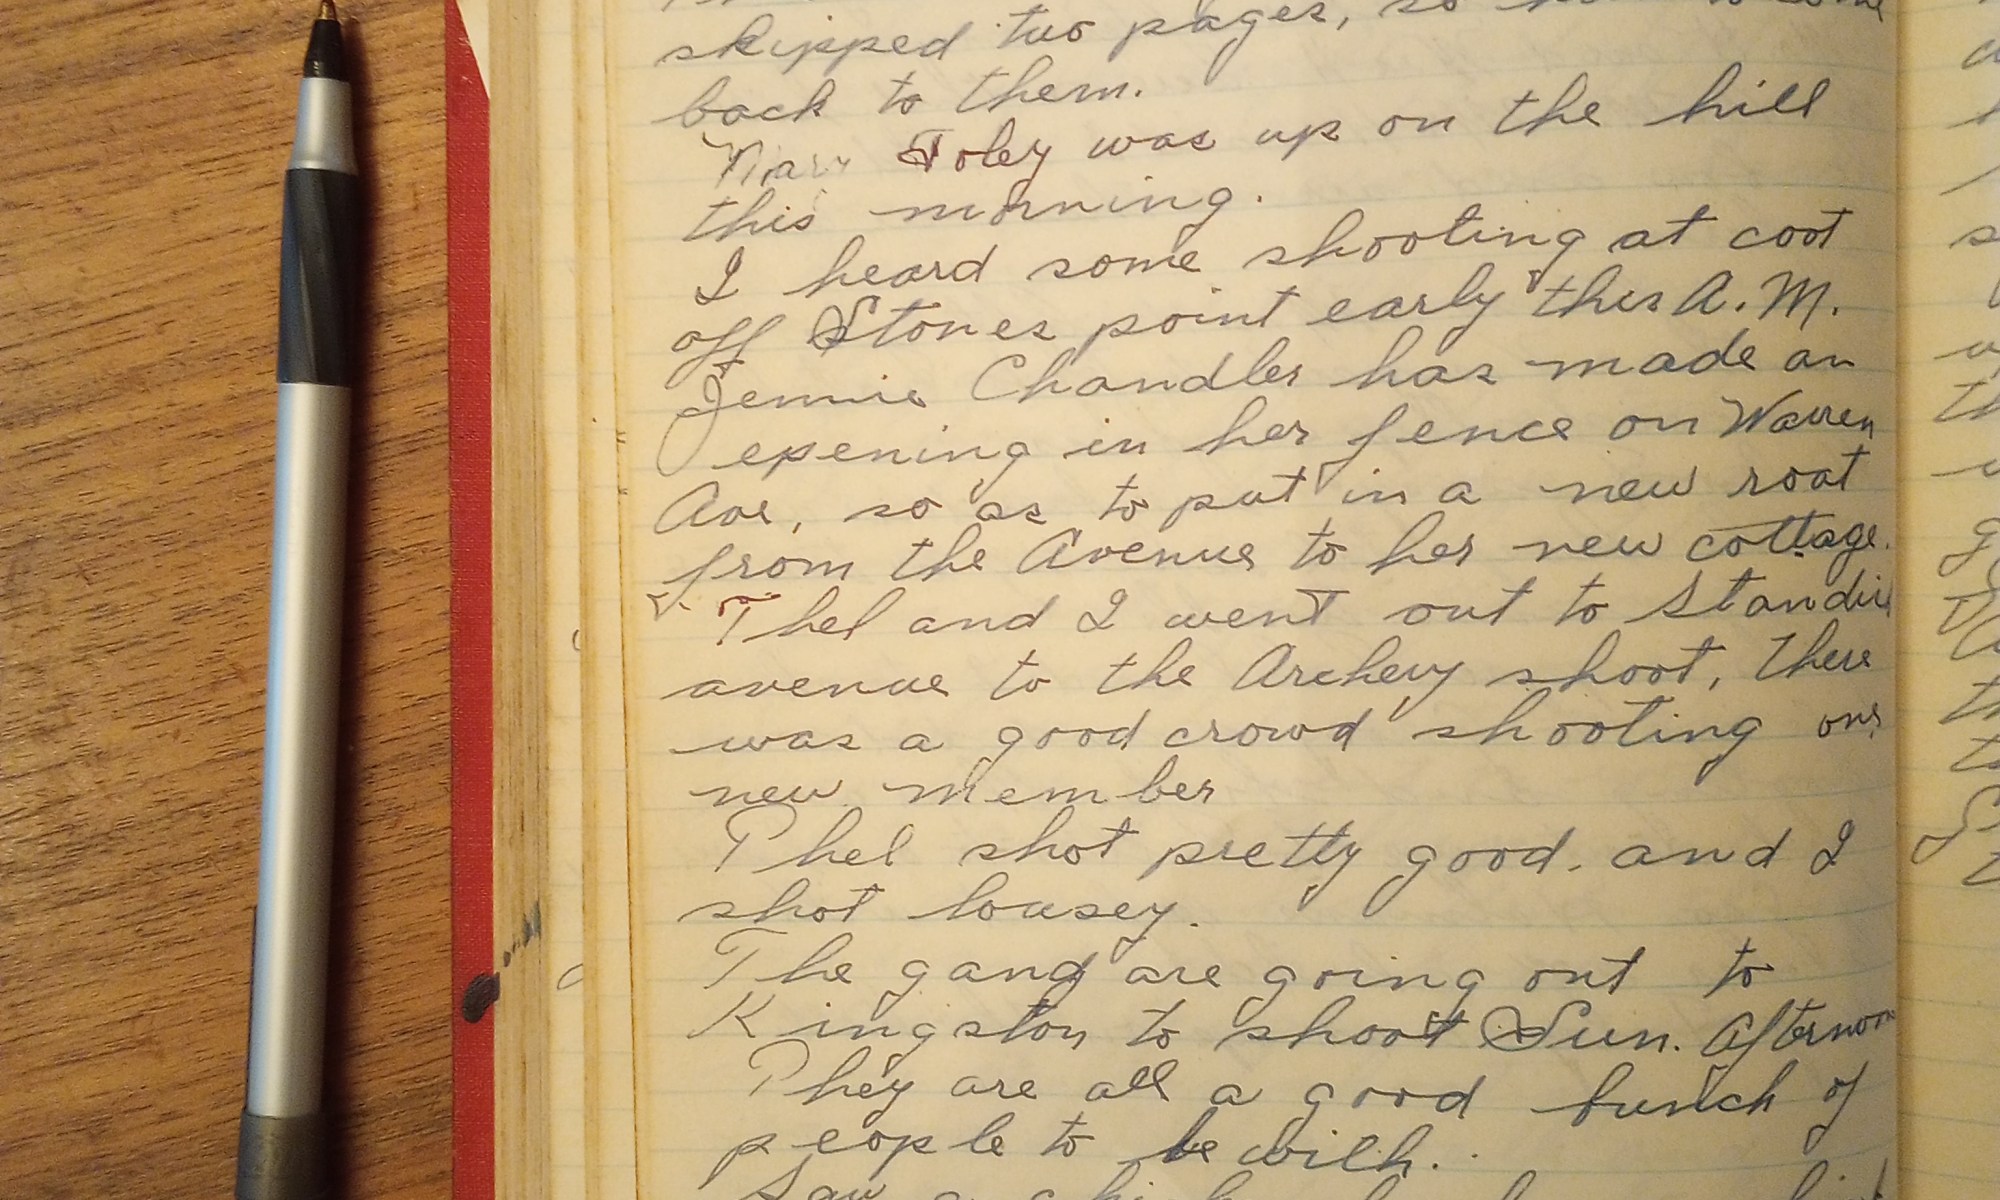 skipped two pages, so
back to them.
Mary Foley was up on the hill
this morning.
I heard some shooting at coot
off Stones point early this A.M.
Jennie Chandler has made an
opening in her fence on Warren
Ave, so as to put in a new roat
from the Avenue to her new cottage.
Thel and I went out to Standish
avenue to the Archery shoot, There
was a good crowd shooting one
new member
Thel shot pretty good. and I
shot lousey.
The gang are going out to
Kingston to shoot Sun. Afternoon
They are all a good bunch of
people to be with.
Saw a